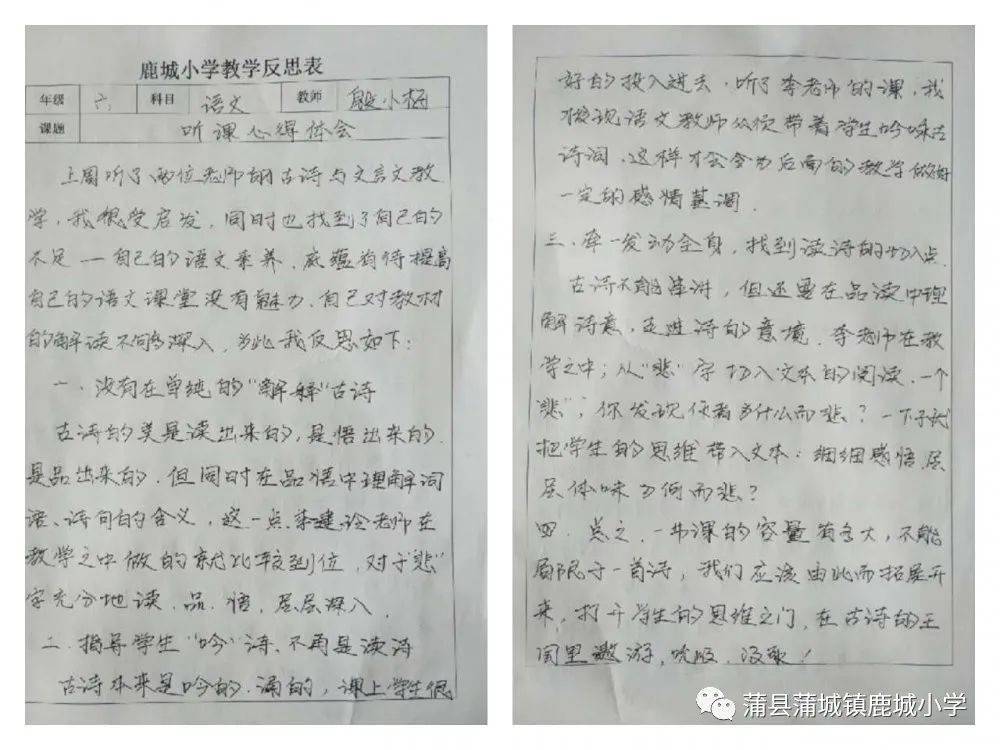 鹿城小学教学反思表
年级 六 科目 语文 教师 殷小梅
课题 听课心得体会
上周听了两位老师的古诗与文言文教
学，我很受启发，同时也找到了自己的
不足—自己的语文素养、底蕴有待提高
自己的语文课堂没有魅力，自己对教材
的解读不够深入，为此我反思如下：
一、没有在单纯的“解释”古诗
古诗的美是读出来的，是悟出来的，
是品出来的，但同时在品悟中理解词
语、诗句的含义，这一点老师在
教学之中做的就比较到位，对于“悲”
字充分地读、品、悟，层层深入
二、指导学生“吟”诗、不再是读诗
古诗本来是吟的、诵的，课上学生很
好的投入进去，听了李老师的课，我
发现语文教师必须带着学生吟咏古
诗词，这样才会令为后面的教学做好
一定的感情基调.
三、牵一发动全身，找到读诗的切入点.
古诗不能讲，但还要在品读中理
解诗意，走进诗的意境，李老师在教
学之中；从“悲”字切入文本的阅读，一个
“悲”，你发现使者为什么而悲？一下子就
把学生的思维带入文本：细细感悟，层
层体味为何而悲？
四、总之，一节课的容量有多大，不能
局限于一首诗，我们应该由此而拓展开
来，打开学生的思维之门，在古诗的王
国里遨游，吮吸，汲取！
蒲县蒲城镇鹿城小学